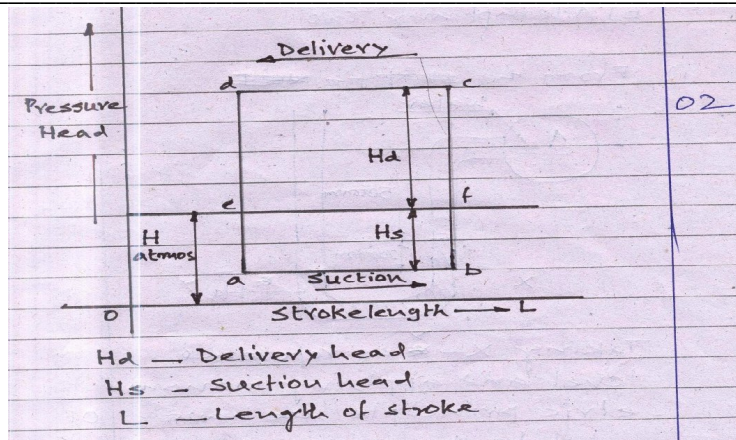 Delivery
d c
Pressure
Head
02
Hd
e f
H
atmos
Hs
a suction b
O strokelength L
Hd — Delivery head
Hs - suction head
L — Length of stroke